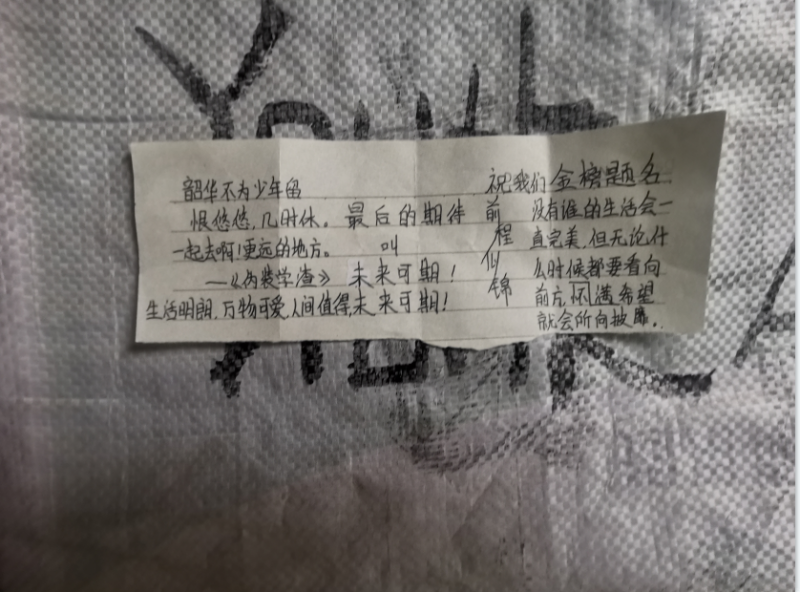 韶华不为少年留
恨悠悠,几时休。
一起去啊!更远的地方。
——《伪装学渣》
生活明朗,万物可爱,人间值得,未来可期!
最后的期待
叫
未来可期!
祝我们金榜题名
前程似锦
没有谁的生活会一
直完美,但无论什
么时候都要看向
前方,怀满希望
就会所向披靡.